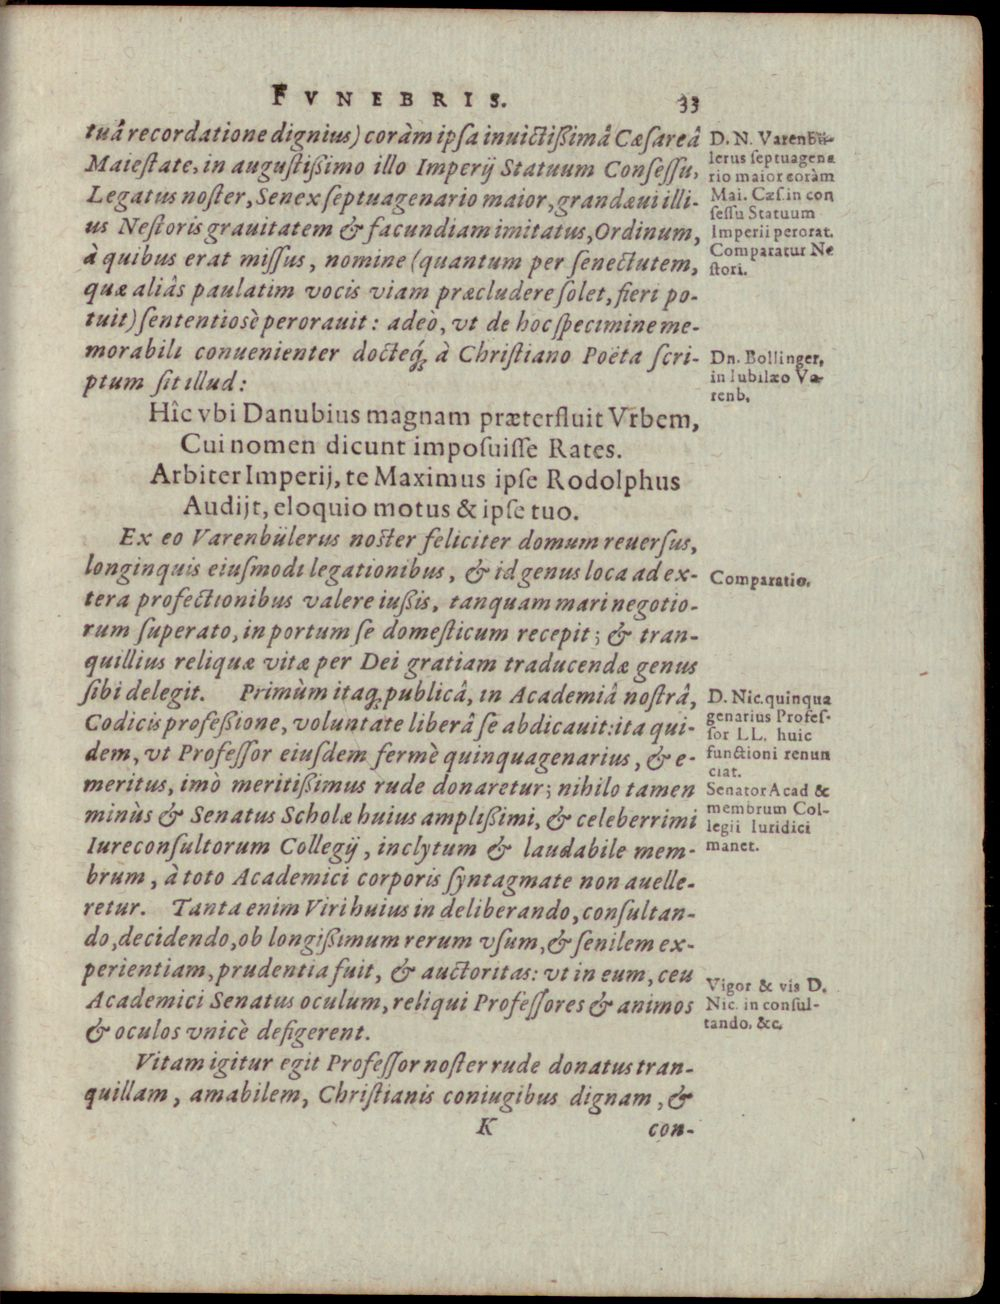 FVNEBRIS. 33
tuâ recordatione dignius) coràm ipsa inuictißimâ Cæsareâ
Maiestate, in augustißimo illo Imperij Statuum Consessu,
Legatus noster, Senex septuagenario maior, grandæui illi-
us Nestoris grauitatem & facundiam imitatus, Ordinum,
à quibus erat missus, nomine (quantum per senectutem,
quæ aliâs paulatim vocis viam præcludere solet, fieri po-
tuit) sententiosè perorauit: adeò, vt de hoc specimine me-
morabili conuenienter docteq́; à Christiano Poëta scri-
ptum sit illud:
Hîc vbi Danubius magnam præterfluit Vrbem,
Cui nomen dicunt imposuisse Rates.
Arbiter Imperij, te Maximus ipse Rodolphus
Audijt, eloquio motus & ipse tuo.
Ex eo Varenbülerus noster feliciter domum reuersus,
longinquis eiusmodi legationibus, & id genus loca ad ex-
tera profectionibus valere iußis, tanquam mari negotio-
rum superato, in portum se domesticum recepit; & tran-
quillius reliquæ vitæ per Dei gratiam traducendæ genus
sibi delegit. Primùm itaq; publicâ, in Academiâ nostrâ,
Codicis profeßione, voluntate liberâ se abdicauit: ita qui-
dem, vt Professor eiusdem fermè quinquagenarius, & e-
meritus, imò meritißimus rude donaretur; nihilo tamen
minùs & Senatus Scholæ huius amplißimi, & celeberrimi
Iureconsultorum Collegij, inclytum & laudabile mem-
brum, à toto Academici corporis syntagmate non auelle-
retur. Tanta enim Viri huius in deliberando, consultan-
do, decidendo, ob longißimum rerum vsum, & senilem ex-
perientiam, prudentia fuit, & auctoritas: vt in eum, ceu
Academici Senatus oculum, reliqui Professores & animos
& oculos vnicè defigerent.
Vitam igitur egit Professor noster rude donatus tran-
quillam, amabilem, Christianis coniugibus dignam, &
K con-
D. N. Varenbü-
lerus septuagena
rio maior coràm
Mai. Cæs. in con
sessu Statuum
Imperii perorat.
Comparatur Ne
stori.
Dn. Bollinger,
in Iubilæo Va-
renb.
Comparatio.
D. Nic. quinqua
genarius Profes-
sor LL. huic
functioni renun
ciat.
Senator Acad &
membrum Col-
legii Iuridici
manet.
Vigor & vis D.
Nic. in consul-
tando. &c.